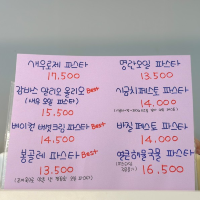 새우로제 파스타
17,500
감바스 알리오 올리오 Best
(새우 오일 파스타)
15,500
베이컨 버섯크림 파스타 Best
14,500
봉골레 파스타 Best
13,500
명란오일 파스타
13,500
시금치 페스토 파스타
14,000
바질 페스토 파스타
14,000
얼큰해물국물
파스타
16,500